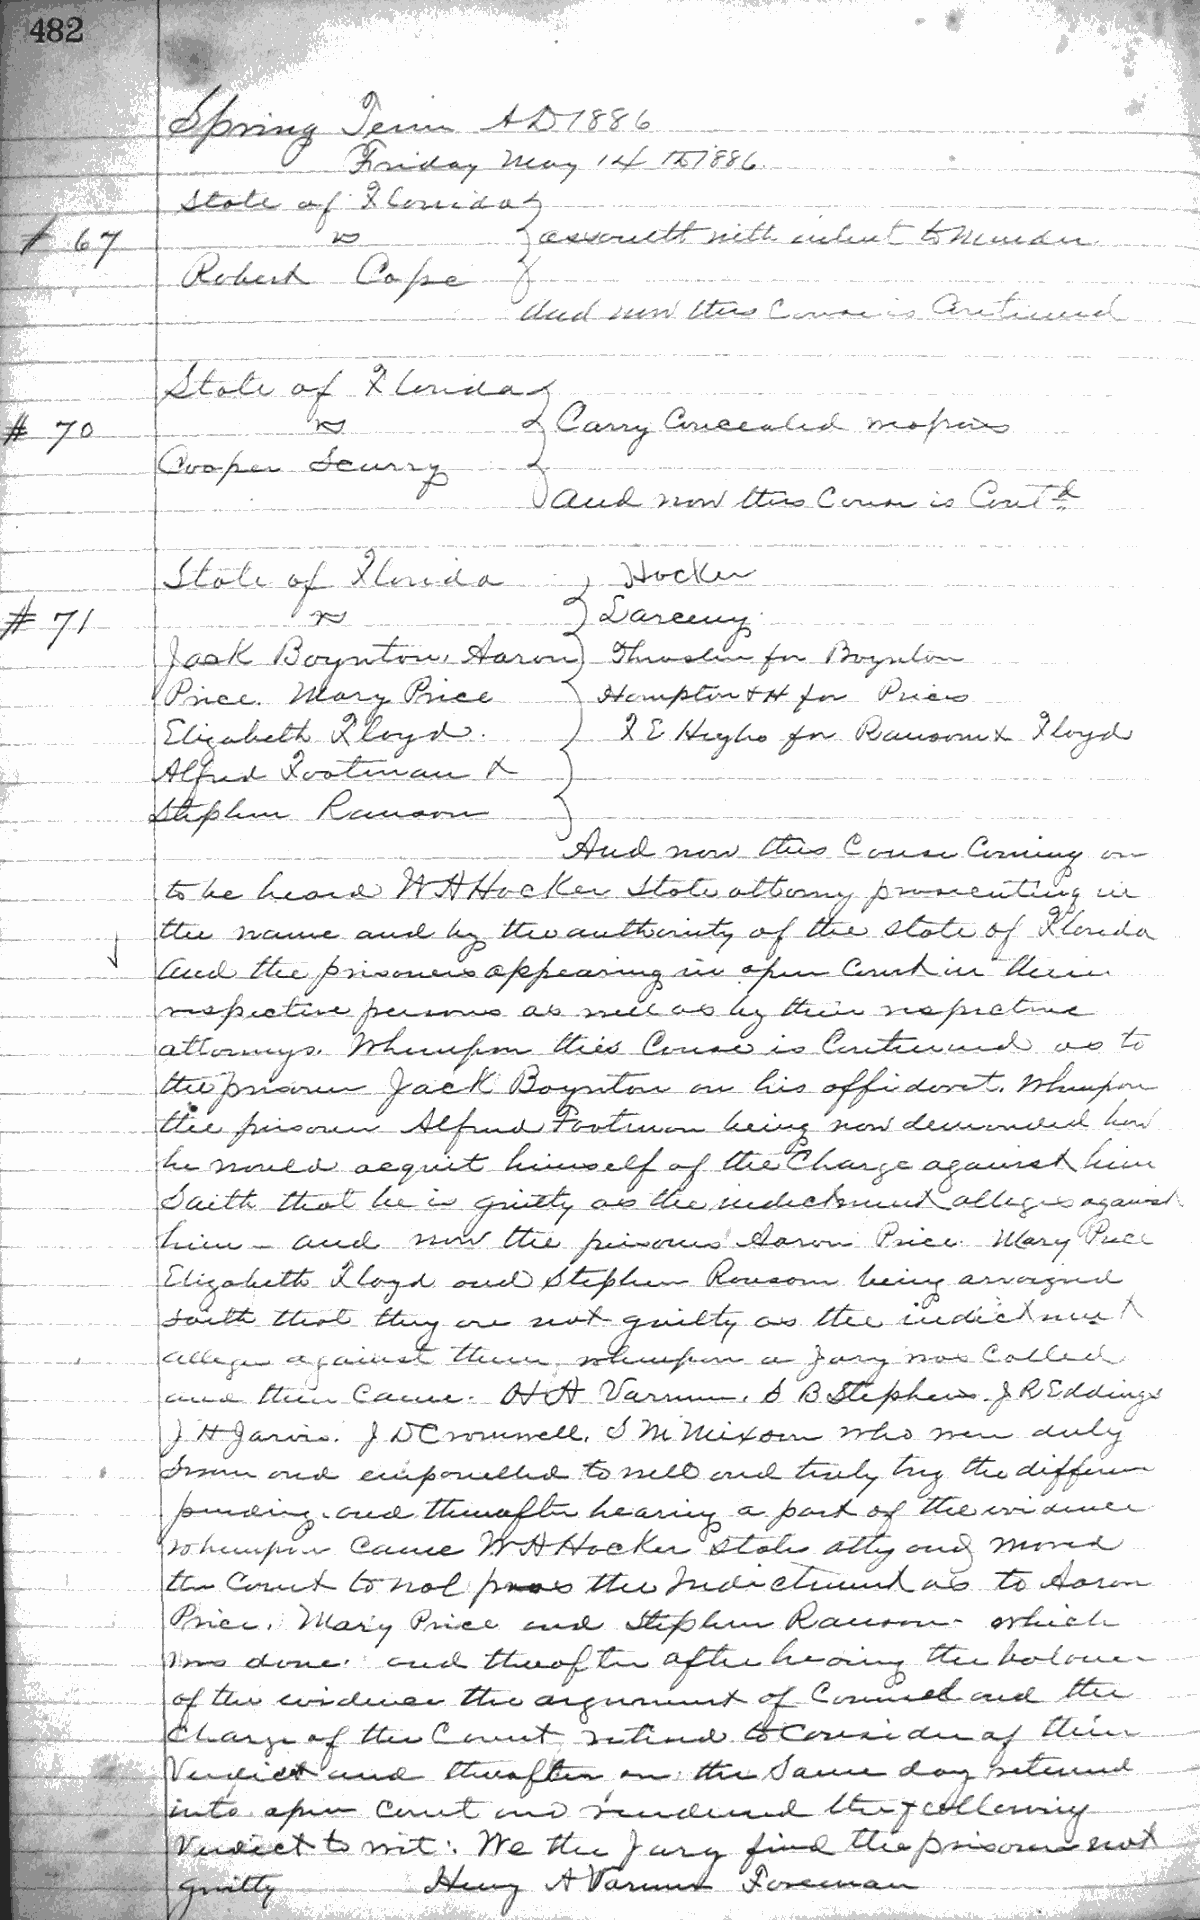 482
Spring Term AD 1886
Friday May 14 AD 1886.
State of Florida
# 67 vs assault with intent to Murder
Robert Cope
And now this Cause is Continued
State of Florida
# 70 vs Carry Concealed weapons
Cooper Scurry
And now this Cause is Contd
State of Florida Hocker
# 71 vs Larceny.
Jack Boynton, Aaron Thrasher for Boynton
Price. Mary Price Hampton & H for Prices
Elizabeth Floyd. F E Hughs for Ransom & Floyd
Alfred Footman &
Stephen Ransom
And now this Cause Coming on
to be heard W A Hocker State attorny prosecuting in
the name and by the authority of the state of Florida
And the prisoners appearing in open Court in their
respective persons as well as by their respective
attorneys. Whereupon this Cause is Continued as to
the prisoner Jack Boynton on his affidavit. Whereupon
the prisoner Alfred Footman being now demanded how
he would acquit himself of the Charge against him
Saith that he is guilty as the indictment alleges against
him - and now the prisoners Aaron Price Mary Price
Elizabeth Floyd and Stephen Ransom being arraigned
saith that they are not guilty as the indictment
alleges against them, whereupon a Jury was Called
and then Came. H A Varnum. S B Stephens. J R Eddings
J H Jarvis. J D Cromwell. S M Mixson who were duly
Sworn and empanelled to well and truly try the differen
pending. and thereafter hearing a part of the evidence
whereupon Came W A Hocker State atty and moved
the Court to nol pros the Indictment as to Aaron
Price, Mary Price and Stephen Ransom - which
was done. and thereafter after hearing the balance
of the evidence the argument of Counsel and the
Charge of the Court retired to Consider of their
Verdict and thereafter on the Same day returned
into open Court and rendered the following
Verdict to wit: We the Jury find the prisoners not
guilty Henry A Varnum Foreman